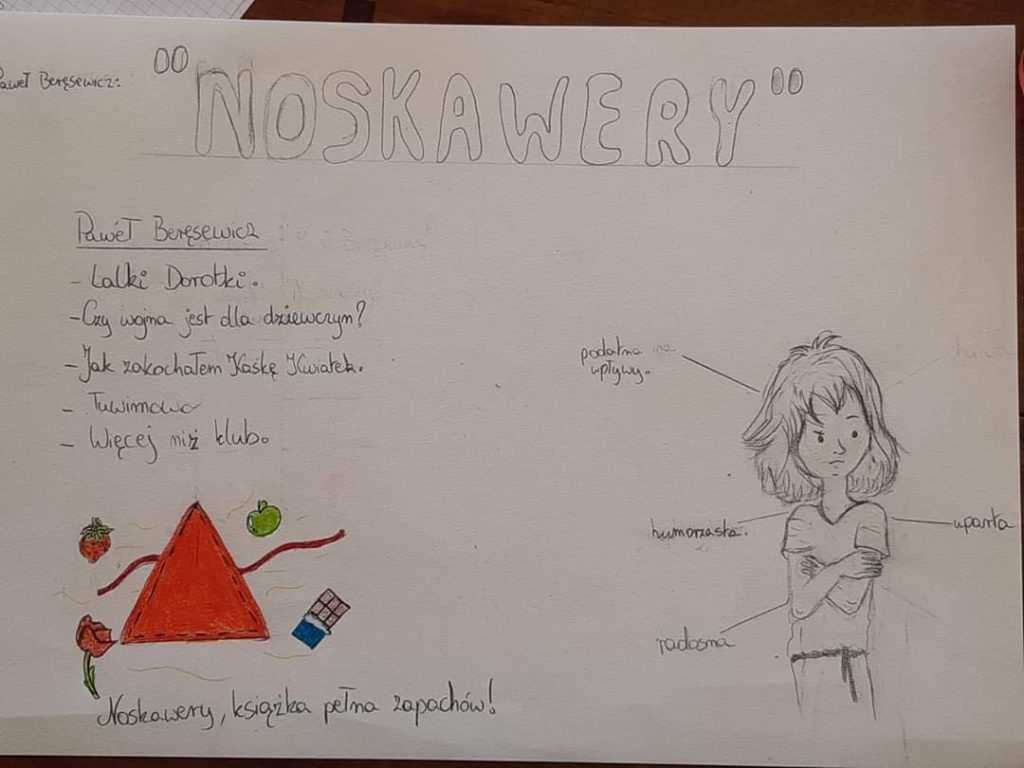 Paweł Beręsewicz:
"NOSKAWERY"
Paweł Beręsewicz
- Lalki Dorotki.
- Czy wojna jest dla dziewczyn?
- Jak zakochałem Kaśkę Kwiatek.
- Tuwimowo
- Więcej niż klub.
podatna na
wpływy.
humorzasta.
uparta
radosna
Noskawery, książka pełna zapachów!